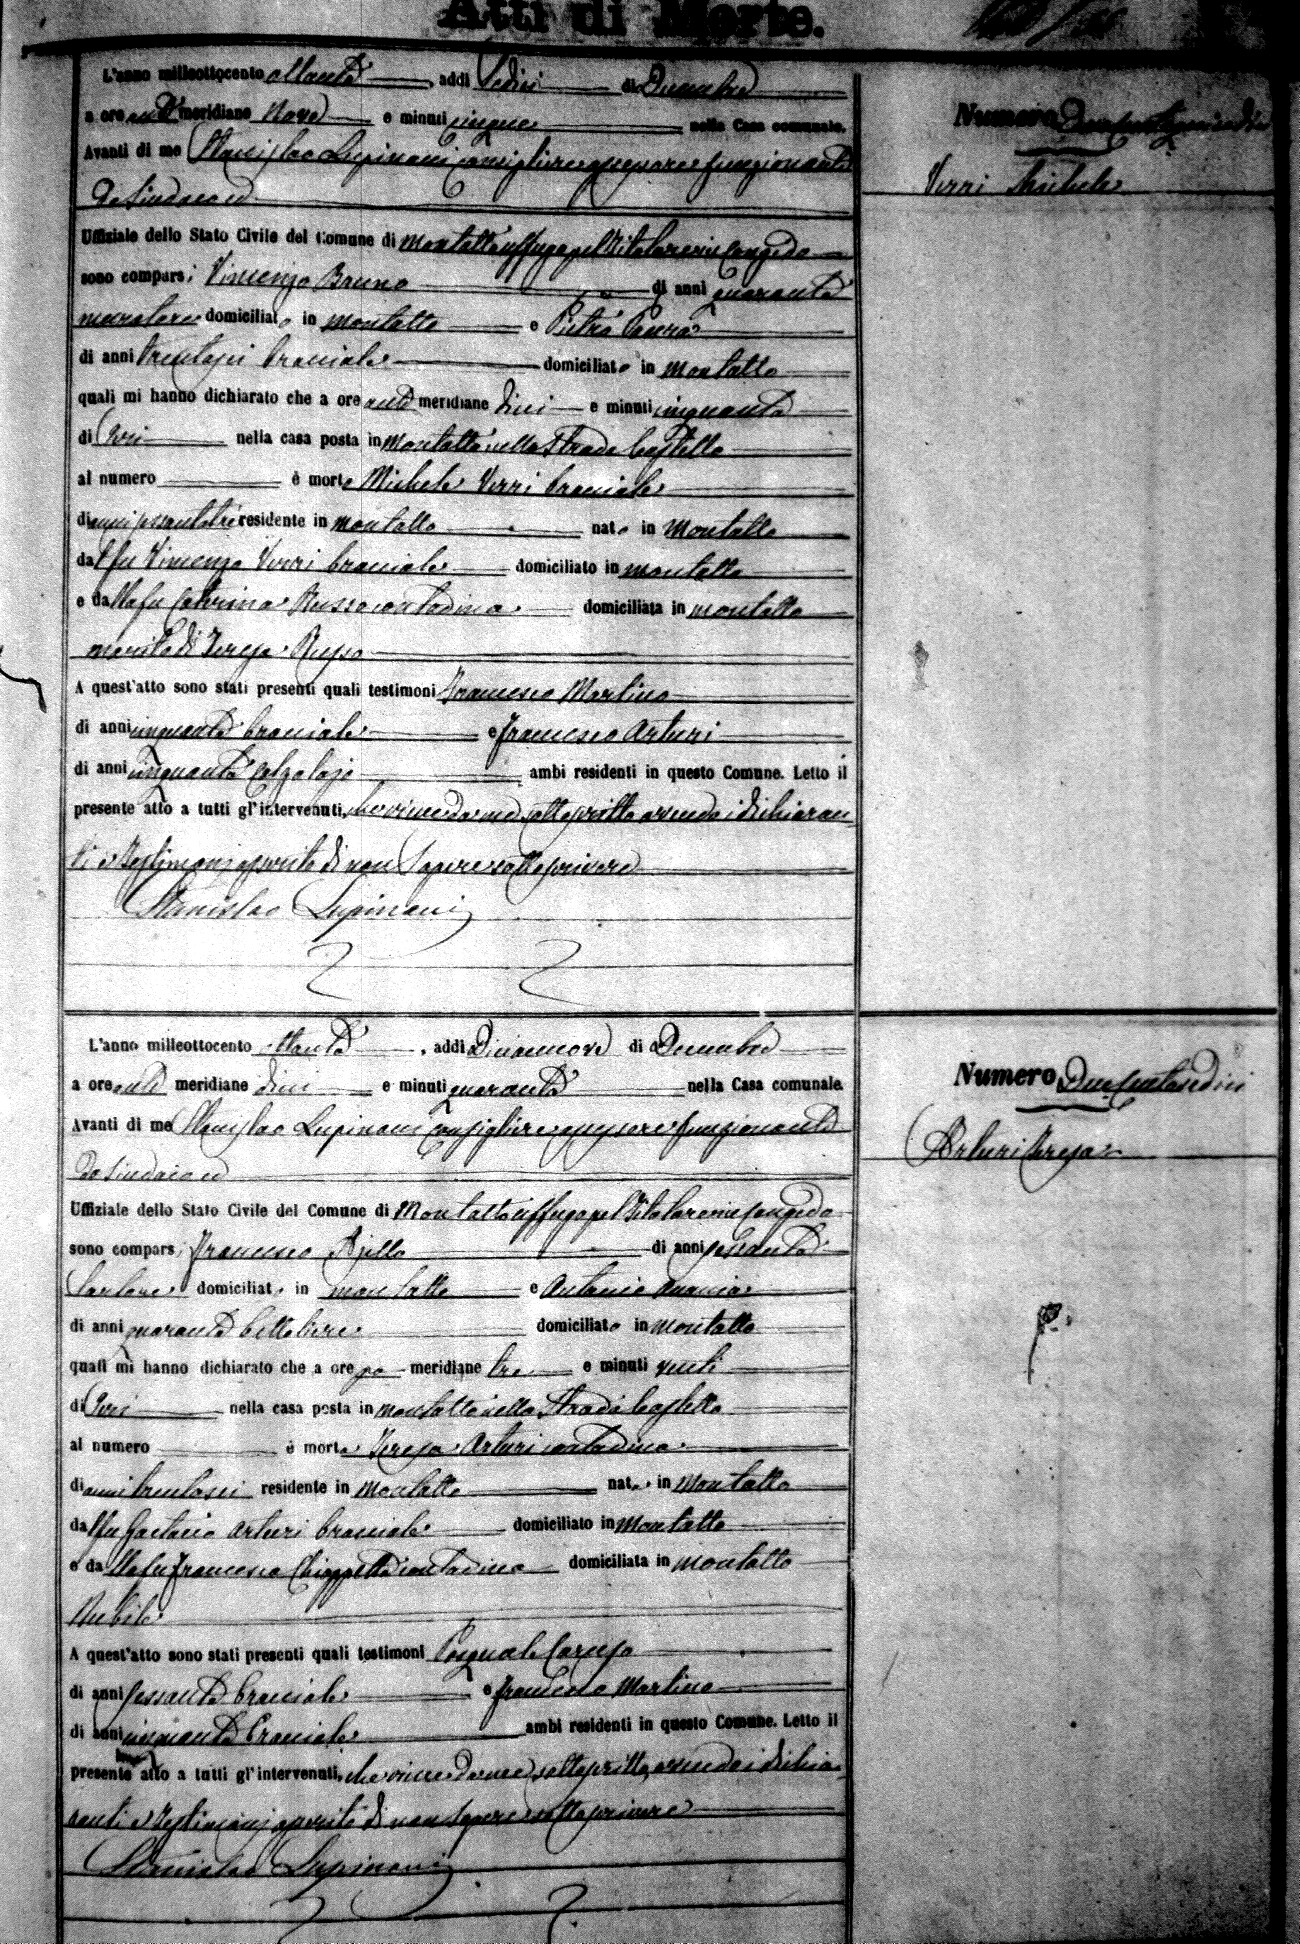 Atti di Morte.
L'anno milleottocento ottanta, addì Sedici di Dicembre
a ore anti meridiane Nove e minuti cinque nella Casa comunale.
Avanti di me Stanislao Lupinacci Consigliere assessore funzionante
da Sindaco ed
Uffiziale dello Stato Civile del Comune di Montalto uffugo pel titolare in Congedo
sono comparsi Vincenzo Bruno di anni quaranta
muratore domiciliato in Montalto e Pietro
di anni trentasei bracciale domiciliato in Montalto
quali mi hanno dichiarato che a ore anti meridiane dieci e minuti cinquanta
di Ieri nella casa posta in Montalto nella Strada Castello
al numero è morto Michele Verri bracciale
di anni sessantatre residente in Montalto nato in Montalto
dal fu Vincenzo Verri bracciale domiciliato in Montalto
e da lla fu Caterina Russo contadina domiciliata in Montalto
marito di Teresa Russo
A quest'atto sono stati presenti quali testimoni Francesco Martino
di anni cinquanta bracciale e Francesco Arturi
di anni cinquanta Calzolajo ambi residenti in questo Comune. Letto il
presente atto a tutti gl'intervenuti, che viene da me sottoscritto avendo i dichiaran
ti e testimonj asserito di non sapere sottoscrivere
Stanislao Lupinacci
Numero Duecentoquindici
Verri Michele
L'anno milleottocento ottanta, addì Diciannove di Dicembre
a ore anti meridiane dieci e minuti quaranta nella Casa comunale.
Avanti di me Stanislao Lupinacci Consigliere assessore funzionante
da Sindaco ed
Uffiziale dello Stato Civile del Comune di Montalto uffugo pel titolare in Congedo
sono comparsi Francesco Ajello di anni sessanta
Sartore domiciliato in Montalto e Antonio Anania
di anni quaranta domiciliato in Montalto
quali mi hanno dichiarato che a ore po meridiane tre e minuti venti
di Ieri nella casa posta in Montalto nella Strada Castello
al numero è morta Teresa Arturi contadina
di anni trentasei residente in Montalto nata in Montalto
dal fu Gaetano Arturi bracciale domiciliato in Montalto
e da lla fu Francesca Chiappetta contadina domiciliata in Montalto
Nubile
A quest'atto sono stati presenti quali testimoni Pasquale Caruso
di anni sessanta bracciale e Francesco Martino
di anni cinquanta bracciale ambi residenti in questo Comune. Letto il
presente atto a tutti gl'intervenuti, che viene da me sottoscritto, avendo i dichia
ranti e testimonj asserito di non sapere sottoscrivere
Stanislao Lupinacci
Numero Duecentosedici
Arturi Teresa